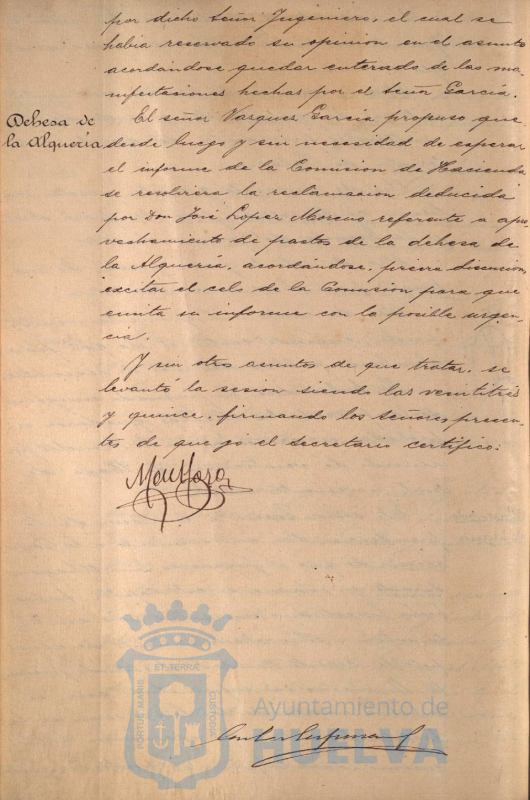 por dicho Señor Ingeniero, el cual se
habia reservado su opinion en el asunto
acordándose quedar enterado de las ma-
nifestaciones hechas por el Señor García.
Dehesa de
la Alquería
El señor Vazquez García propuso que
desde luego y sin necesidad de esperar
el informe de la Comision de Hacienda
se resolviera la reclamacion deducida
por Don José Lopez Moreno referente a apro
vechamiento de pastos de la dehesa de
la Alquería, acordándose, prévia discusion,
excitar el celo de la Comision para que
emita su informe con la posible urgen-
cia.
Y sin otros asuntos de que tratar, se
levantó la sesion siendo las veintitres
y quince, firmando los señores presen-
tes de que yo el secretario certifico:
ET TERRÆ
PORTUS MARIS
CUSTODIA
Ayuntamiento de
HUELVA